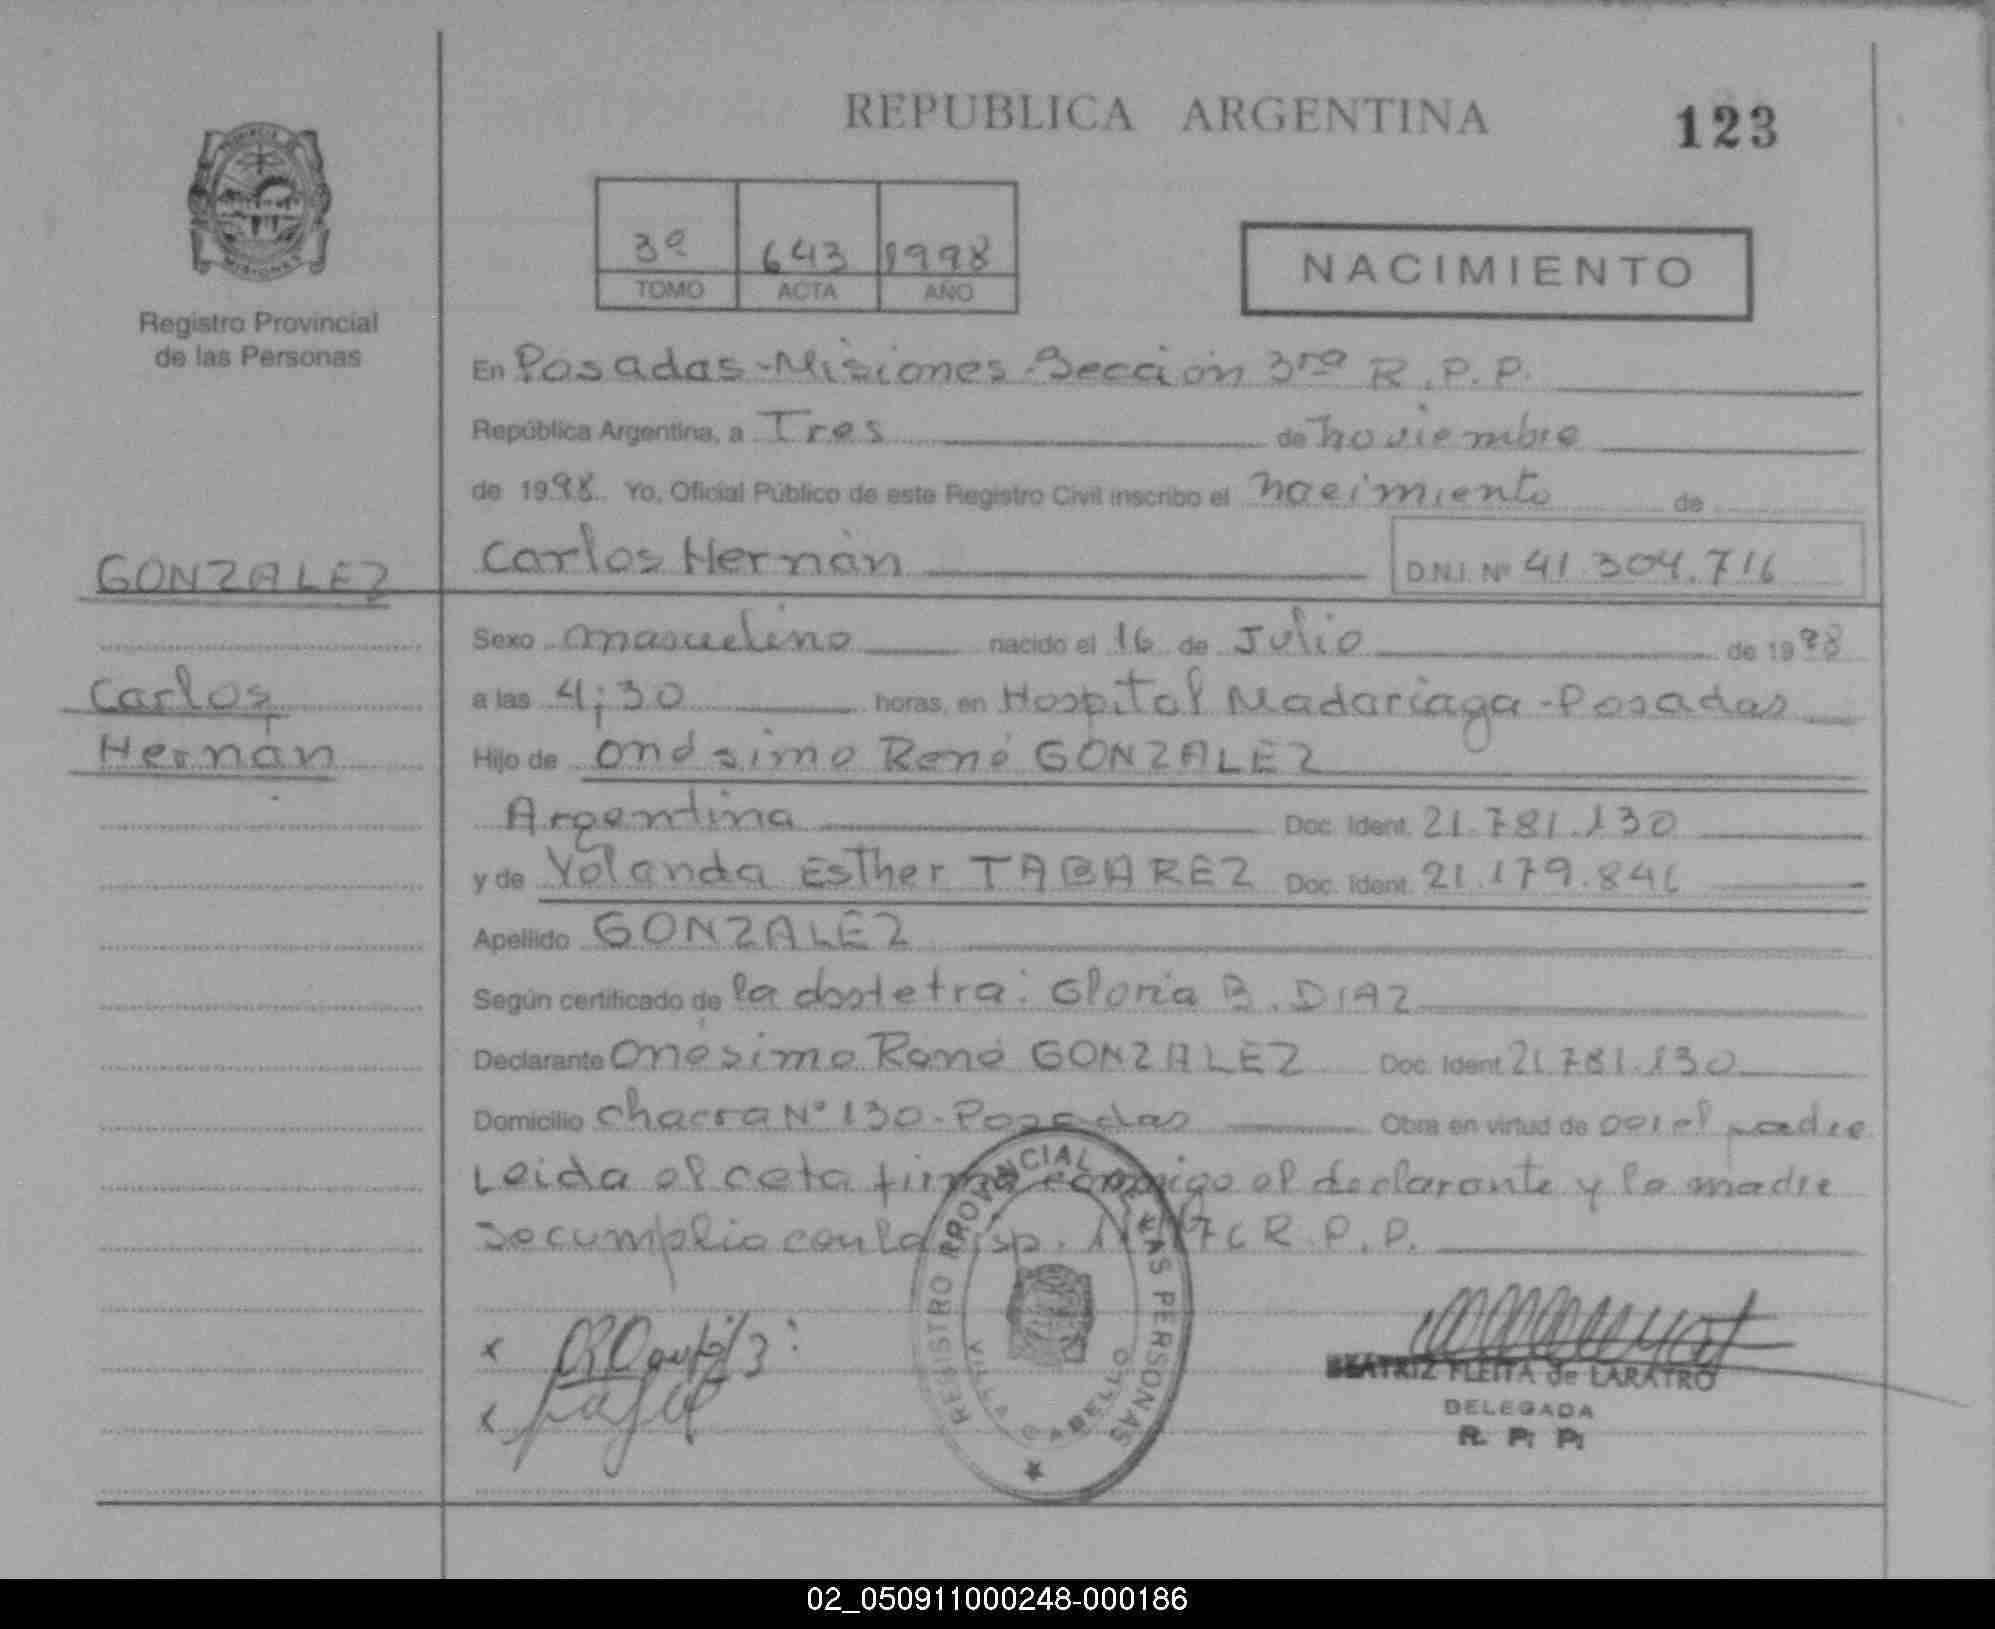 REPUBLICA ARGENTINA
123
3º 643 1998
TOMO ACTA AÑO
NACIMIENTO
Registro Provincial
de las Personas
En Posadas-Misiones-Sección 3ra R.P.P.
República Argentina, a Tres de noviembre
de 1998. Yo, Oficial Público de este Registro Civil inscribo el nacimiento de
GONZALEZ
Carlos Hernán D.N.I. Nº 41.304.716
Sexo masculino nacido el 16 de Julio de 1998
Carlos
a las 4;30 horas, en Hospital Madariaga-Posadas
Hernán
Hijo de Onésimo René GONZALEZ
Argentina Doc. Ident. 21.781.130
y de Yolanda Esther TABAREZ Doc. Ident. 21.179.846
Apellido GONZALEZ
Según certificado de la obstetra: Gloria B. DIAZ
Declarante Onésimo René GONZALEZ Doc. Ident 21.781.130
Domicilio chacra Nº 130-Posadas Obra en virtud de padre
Leida el firma conmigo el declarante y la madre
Se cumplio con la R.P.P.
REGISTRO PROVINCIAL DE LAS PERSONAS
VILLA CABELLO
BEATRIZ FLEITA de LARATRO
DELEGADA
R. P. P.
02_050911000248-000186